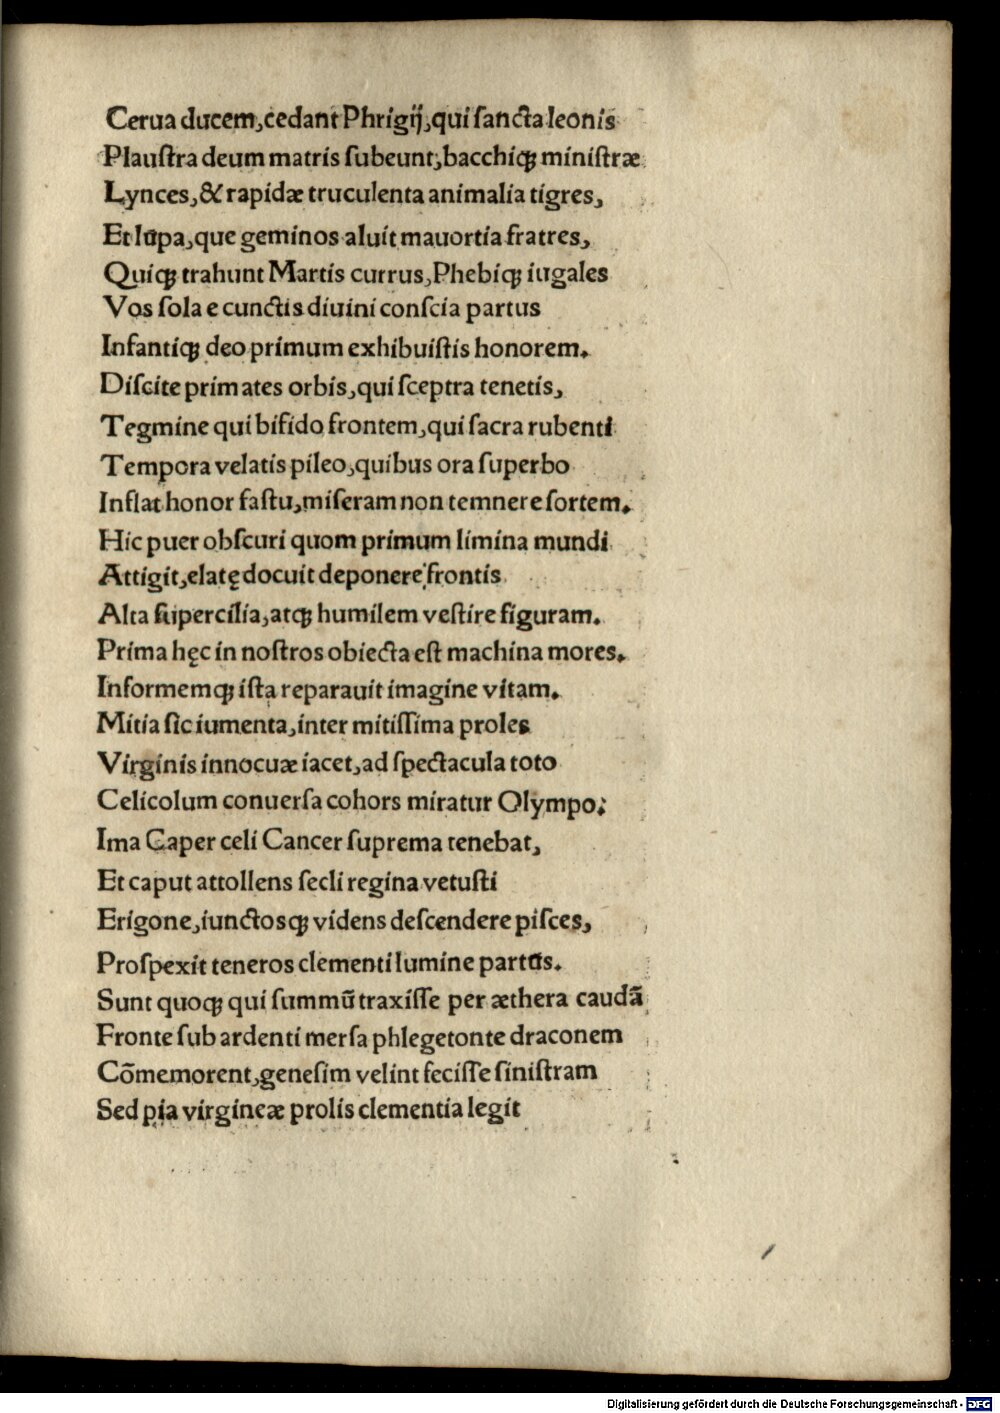 Cerua ducem,cedant Phrigij,qui ſancta leonis
Plauſtra deum matris ſubeunt,bacchiꝗ miniſtræ
Lynces,& rapidæ truculenta animalia tigres,
Et lupa,que geminos aluit mauortia fratres,
Quiꝗ trahunt Martis currus,Phebiꝗ iugales
Vos ſola e cunctis diuini conſcia partus
Infantiꝗ deo primum exhibuiſtis honorem.
Diſcite primates orbis,qui ſceptra tenetis,
Tegmine qui bifido frontem,qui ſacra rubenti
Tempora velatis pileo,quibus ora ſuperbo
Inflat honor faſtu,miſeram non temnere ſortem.
Hic puer obſcuri quom primum limina mundi
Attigit,elatę docuit deponere frontis
Alta ſupercilia,atꝗ humilem veſtire figuram.
Prima hęc in noſtros obiecta eſt machina mores.
Informemꝗ iſta reparauit imagine vitam.
Mitia ſic iumenta,inter mitiſſima proles
Virginis innocuæ iacet,ad ſpectacula toto
Celicolum conuerſa cohors miratur Olympo:
Ima Caper celi Cancer ſuprema tenebat,
Et caput attollens ſecli regina vetuſti
Erigone,iunctosꝗ videns deſcendere piſces,
Proſpexit teneros clementi lumine partus.
Sunt quoꝗ qui ſummū traxiſſe per æthera caudã
Fronte ſub ardenti merſa phlegetonte draconem
Cõmemorent,geneſim velint feciſſe ſiniſtram
Sed pia virgineæ prolis clementia legit
Digitalisierung gefördert durch die Deutsche Forschungsgemeinschaft - DFG